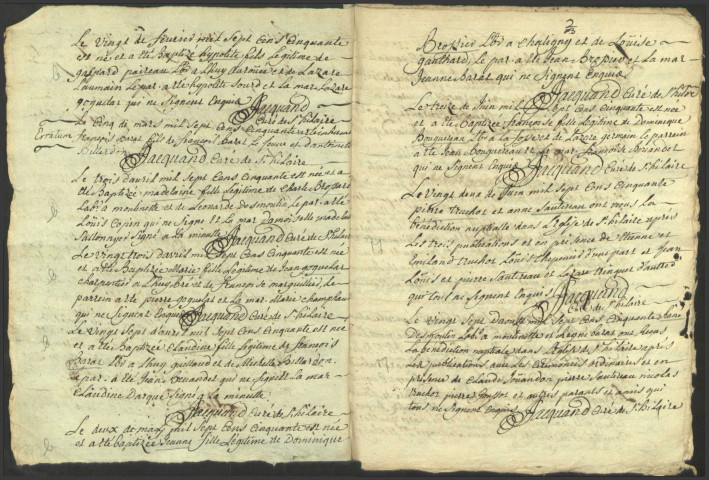 Le vingt de fevrier mil sept Cens Cinquante
est né et a eté Baptizé hypolite fils Legitime de
gaspard paireau Lbr a Lhuy darnier et de Lazare
Laumain Le par. a eté hypolite Sourd et La mar. Lazare
goguelar qui ne Signent Enquis
Jacquand
Curé de St hilaire
Le Cinq de mars mil sept Cens Cinquante
françois Barat fils de françois Barat
Jacquand Curé de St hilaire
Le trois davril mil sept Cens Cinquante est née et a
eté Baptizée madelaine fille Legitime de Charle Brossier
Lab. a montinette et de Leonarde Desmoulin Le par. a eté
Loüis Copin qui ne Signe et La mar. Damoiselle madelaine
Signé a La minutte
Jacquand Curé de St hilaire
Le vingt trois davril mil Sept Cens Cinquante est née
et a eté Baptizée Marie fille Legitime de Jean goguelar
charpentier a Lhuy Bré et de françoise marguillier, Le
parrein a eté pierre goguelar et La mar. Marie Champleau
qui ne Signent Enquis Jacquand Curé de St hilaire
Le vingt Sept davril mil Sept Cens Cinquante est née
et a eté Baptizée Claudine fille Legitime de françois
Barat Lbr a Lhuy guillaud et de Michelle Billardon
Le par. a eté Jean Devandet qui ne Signe et La mar.
Claudine Darque Signé a La minutte
Jacquand Curé de St hilaire
Le deux de may mil Sept Cens Cinquante est née
et a eté Baptizée Jeanne fille Legitime de Dominique
Brossier Lbr a Chatigny et de Loüise
gauthard, Le par. a eté Jean Brossier et La mar.
Jeanne Barat qui ne Signent Enquis
Jacquand Curé de St hilaire
Le treize de Juin mil Sept Cens Cinquante est née
et a eté Baptizée françoise fille Legitime de Dominique
Bouquereau Lbr a et de Lazare permein Le parrein
a eté Jean Bouquereau et La mar. françoise Jouandet
qui ne Signent Enquis Jacquand Curé de St hilaire
Le vingt deux de Juin mil Sept Cens Cinquante
pierre truchot et anne Sautereau ont reçu La
Benediction nuptialle dans Leglise de St hilaire après
Les trois publications et en presence de Etienne et
Emiland truchot Loüis thevenet d'une part et Jean
Loüis et pierre Sautereau et Lazare trinquet d'autre
qui tous ne Signent Enquis Jacquand
Curé de St hilaire
Le vingt Sept Daoust mil Sept Cens Cinquante
Desmoulin Lbr a montinette et Reyne Barat ont Reçu
La benediction nuptialle dans Leglise de St hilaire après
Les publications avec Les Ceremonies ordinaires et en
presence de Claude Jouandon pierre Sautereau nicolas
truchot pierre poussot et autres parants et amis qui
tous ne Signent Enquis Jacquand Curé de St hilaire